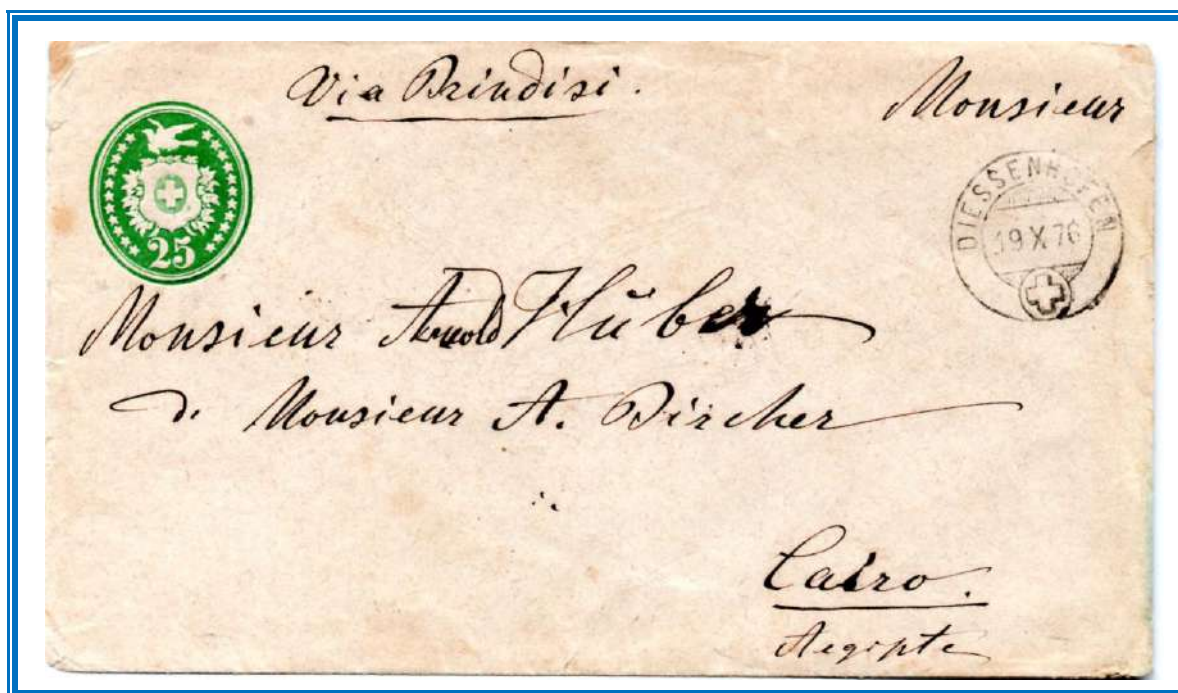 Via Brindisi.
Monsieur
25
DIESSENHOFEN
19 X 76
Monsieur Arnold Huber
d. Monsieur A. Bircher
Cairo.
Aegipte